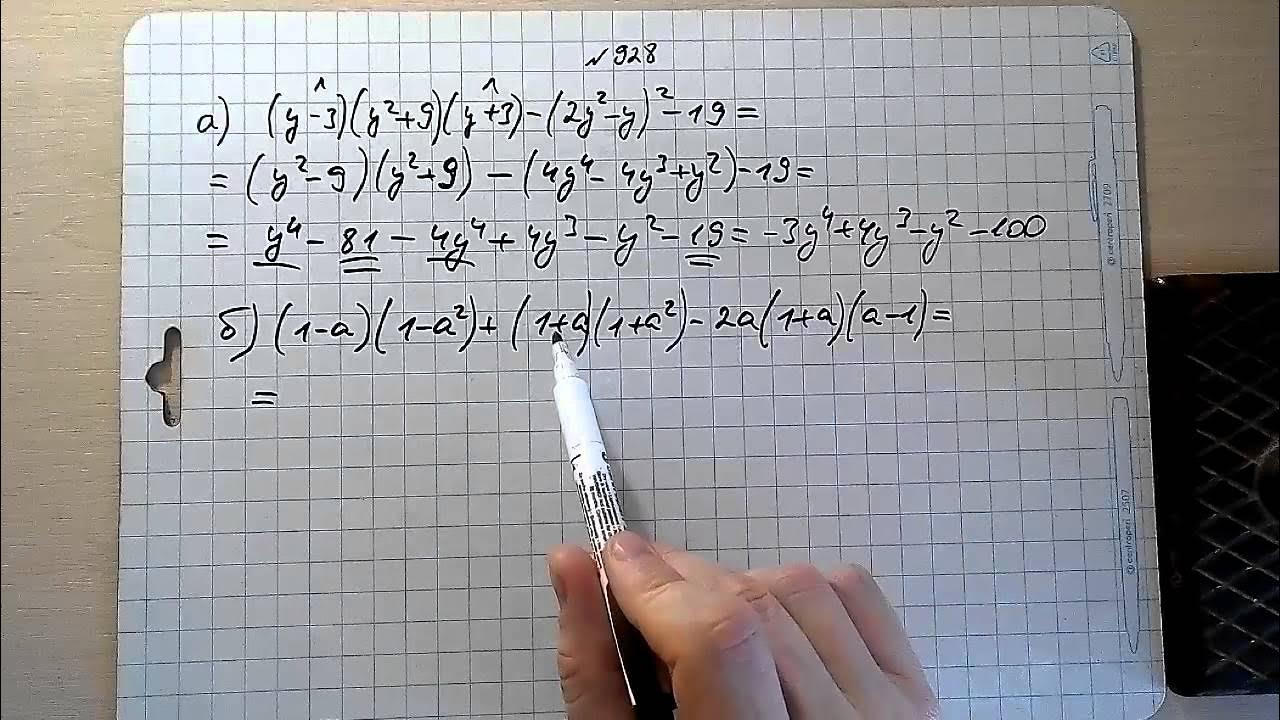 № 928
а) (y-3)(y²+9)(y+3)-(2y²-y)²-19=
= (y²-9)(y²+9) - (4y⁴- 4y³+y²)-19=
= y⁴- 81 - 4y⁴+ 4y³- y²-19= -3y⁴+4y³-y²-100
б) (1-a)(1-a²)+(1+a)(1+a²)-2a(1+a)(a-1)=
=
centropen 2709
centropen 2507